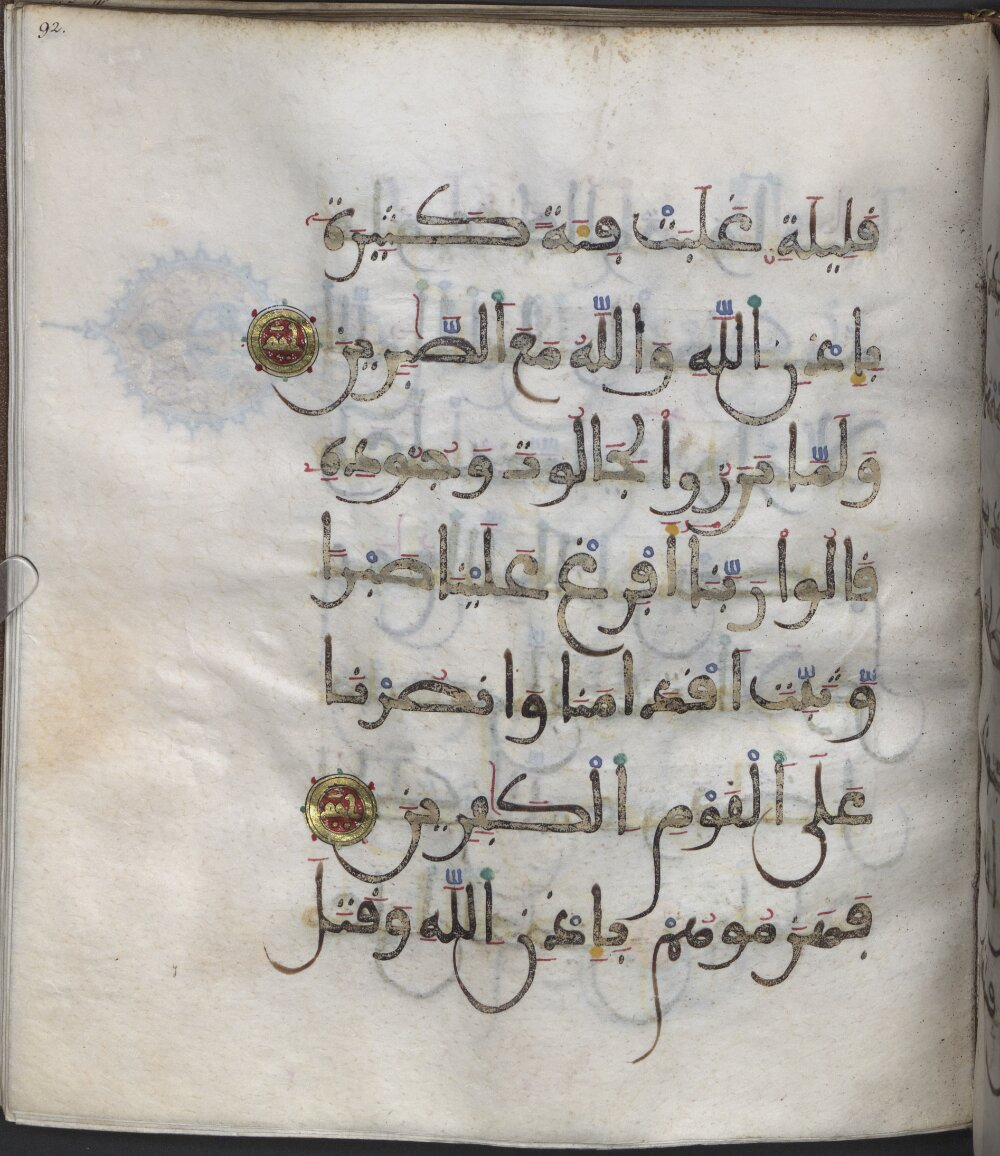 92.
فليلة غلبت فئة كثيرة
بإذن الله والله مع الصبرين
ولما برزوا لجالوت وجنوده
فالوا ربنا أفرغ علينا صبرا
وثبت أفدامنا وانصرنا
على الفوم الكفرين
فهزموهم بإذن الله وفتل